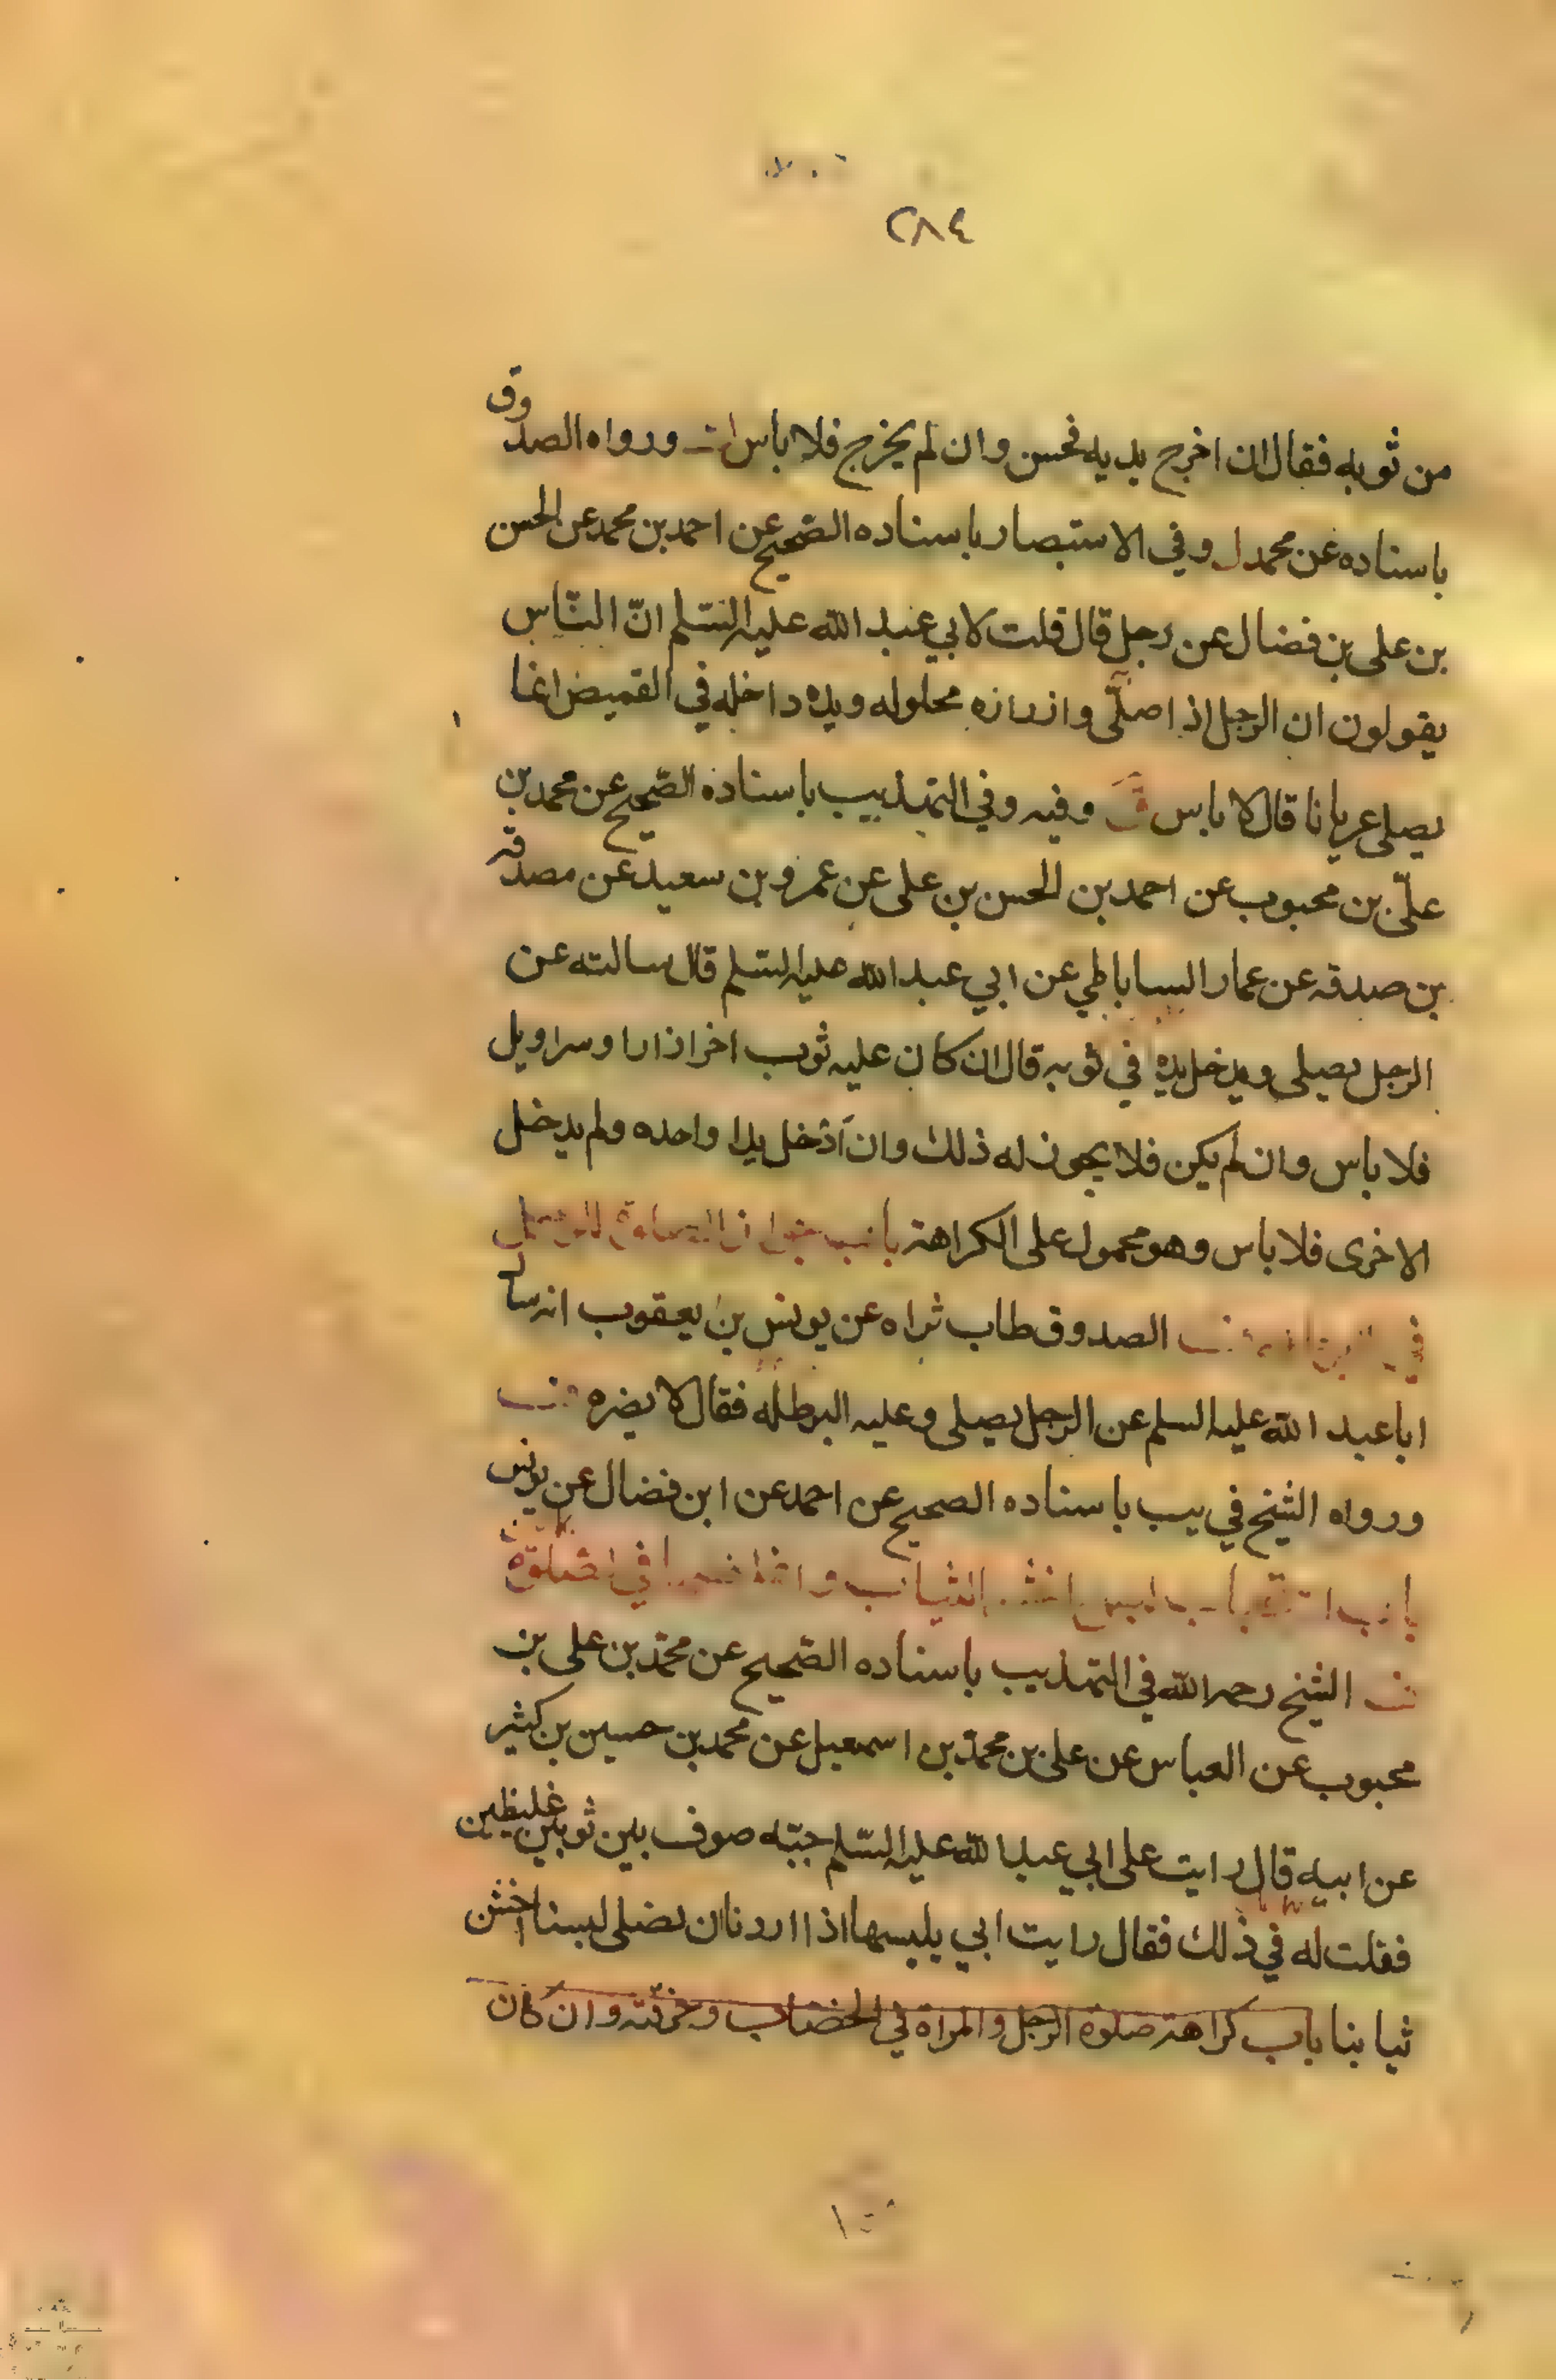 ٢٨٤
من ثوبه فقال ان اخرج يديه فحسن وان لم يخرج فلا باس ورواه الصدوق
باسناده عن محمد ل وفي الاستبصار باسناده الصّحيح عن احمد بن محمد عن الحسن
بن على بن فضال عن رجل قال قلت لابي عبد الله عليه السّلم انّ النّاس
يقولون ان الرجل اذا صلّى وازراره محلوله ويده داخله في القميص انما
يصلى عريانا قال لا باس وفيه وفي التهذيب باسناده الصّحيح عن محمد بن
علىّ بن محبوب عن احمد بن الحسن بن على عن عمرو بن سعيد عن مصدقه
بن صدقه عن عمار الساباطي عن ابي عبد الله عليه السّلم قال سالته عن
الرجل يصلى ويدخل يده في ثوبه قال ان كان عليه ثوب اخر ازارا وسراويل
فلا باس وان لم يكن فلا يجوز له ذلك وان ادخل يدا واحده ولم يدخل
الاخرى فلا باس وهو محمول على الكراهة باب جواز الصلوة للرجل
في الصدوق طاب ثراه عن يونس بن يعقوب انه سال
ابا عبد الله عليه السلم عن الرجل يصلى وعليه البرطله فقال لا يضره
ورواه الشيخ في يب باسناده الصحيح عن احمد عن ابن فضال عن يونس
باب استحباب لبس اخشن الثياب واغلظها في الصلوة
الشيخ رحمه الله في التهذيب باسناده الصّحيح عن محمّد بن على بن
محبوب عن العباس عن على بن محمّد بن اسمعيل عن محمد بن حسين بن كثير
عن ابيه قال رايت على ابي عبد الله عليه السّلم جبّه صوف بين ثوبين غليظين
فقلت له في ذلك فقال رايت ابي يلبسها اذا اردنا ان نصلى لبسنا اخشن
ثيابنا باب كراهة صلوة الرجل والمراة في الخضاب وخرقته وان كان